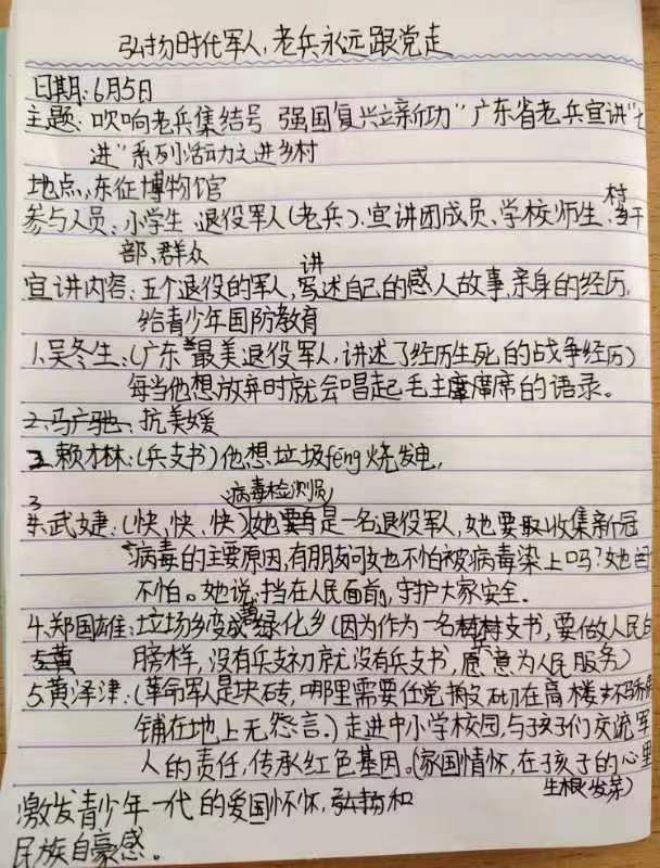 弘扬时代军人,老兵永远跟党走
日期:6月5日
主题:吹响老兵集结号 强国复兴立新功"广东省老兵宣讲"七
进"系列活动之进乡村
地点:东征博物馆
参与人员:小学生、退役军人(老兵)、宣讲团成员、学校师生、村干
部、群众
宣讲内容:五个退役的军人,讲述自己的感人故事,亲身的经历,
给青少年国防教育
1、吴冬生:(广东最美退役军人,讲述了经历生死的战争经历)
每当他想放弃时就会唱起毛主席的语录。
2、马广驰、抗美媛
2、赖木林:(兵支书)他想垃圾fěng烧发电,
病毒检测员
3、武婕:(快、快、快)她是一名退役军人,她要取收集新冠
病毒的主要原因,有朋友问她不怕被病毒染上吗?她
不怕。她说:挡在人民面前,守护大家安全.
4、郑国雄:垃场乡变成碧绿化乡(因为作为一名村支书,要做人民的
膀样,没有兵支初就没有兵支书,愿意为人民服务)
5、黄泽津:(革命军人是块砖,哪里需要任党搬,砌在高楼不骄
铺在地上无怨言.)走进中小学校园,与孩子们交流军
人的责任,传承红色基因。(家国情怀,在孩子的心里
生根发芽)
激发青少年一代的爱国怀怀,弘扬和
民族自豪感。